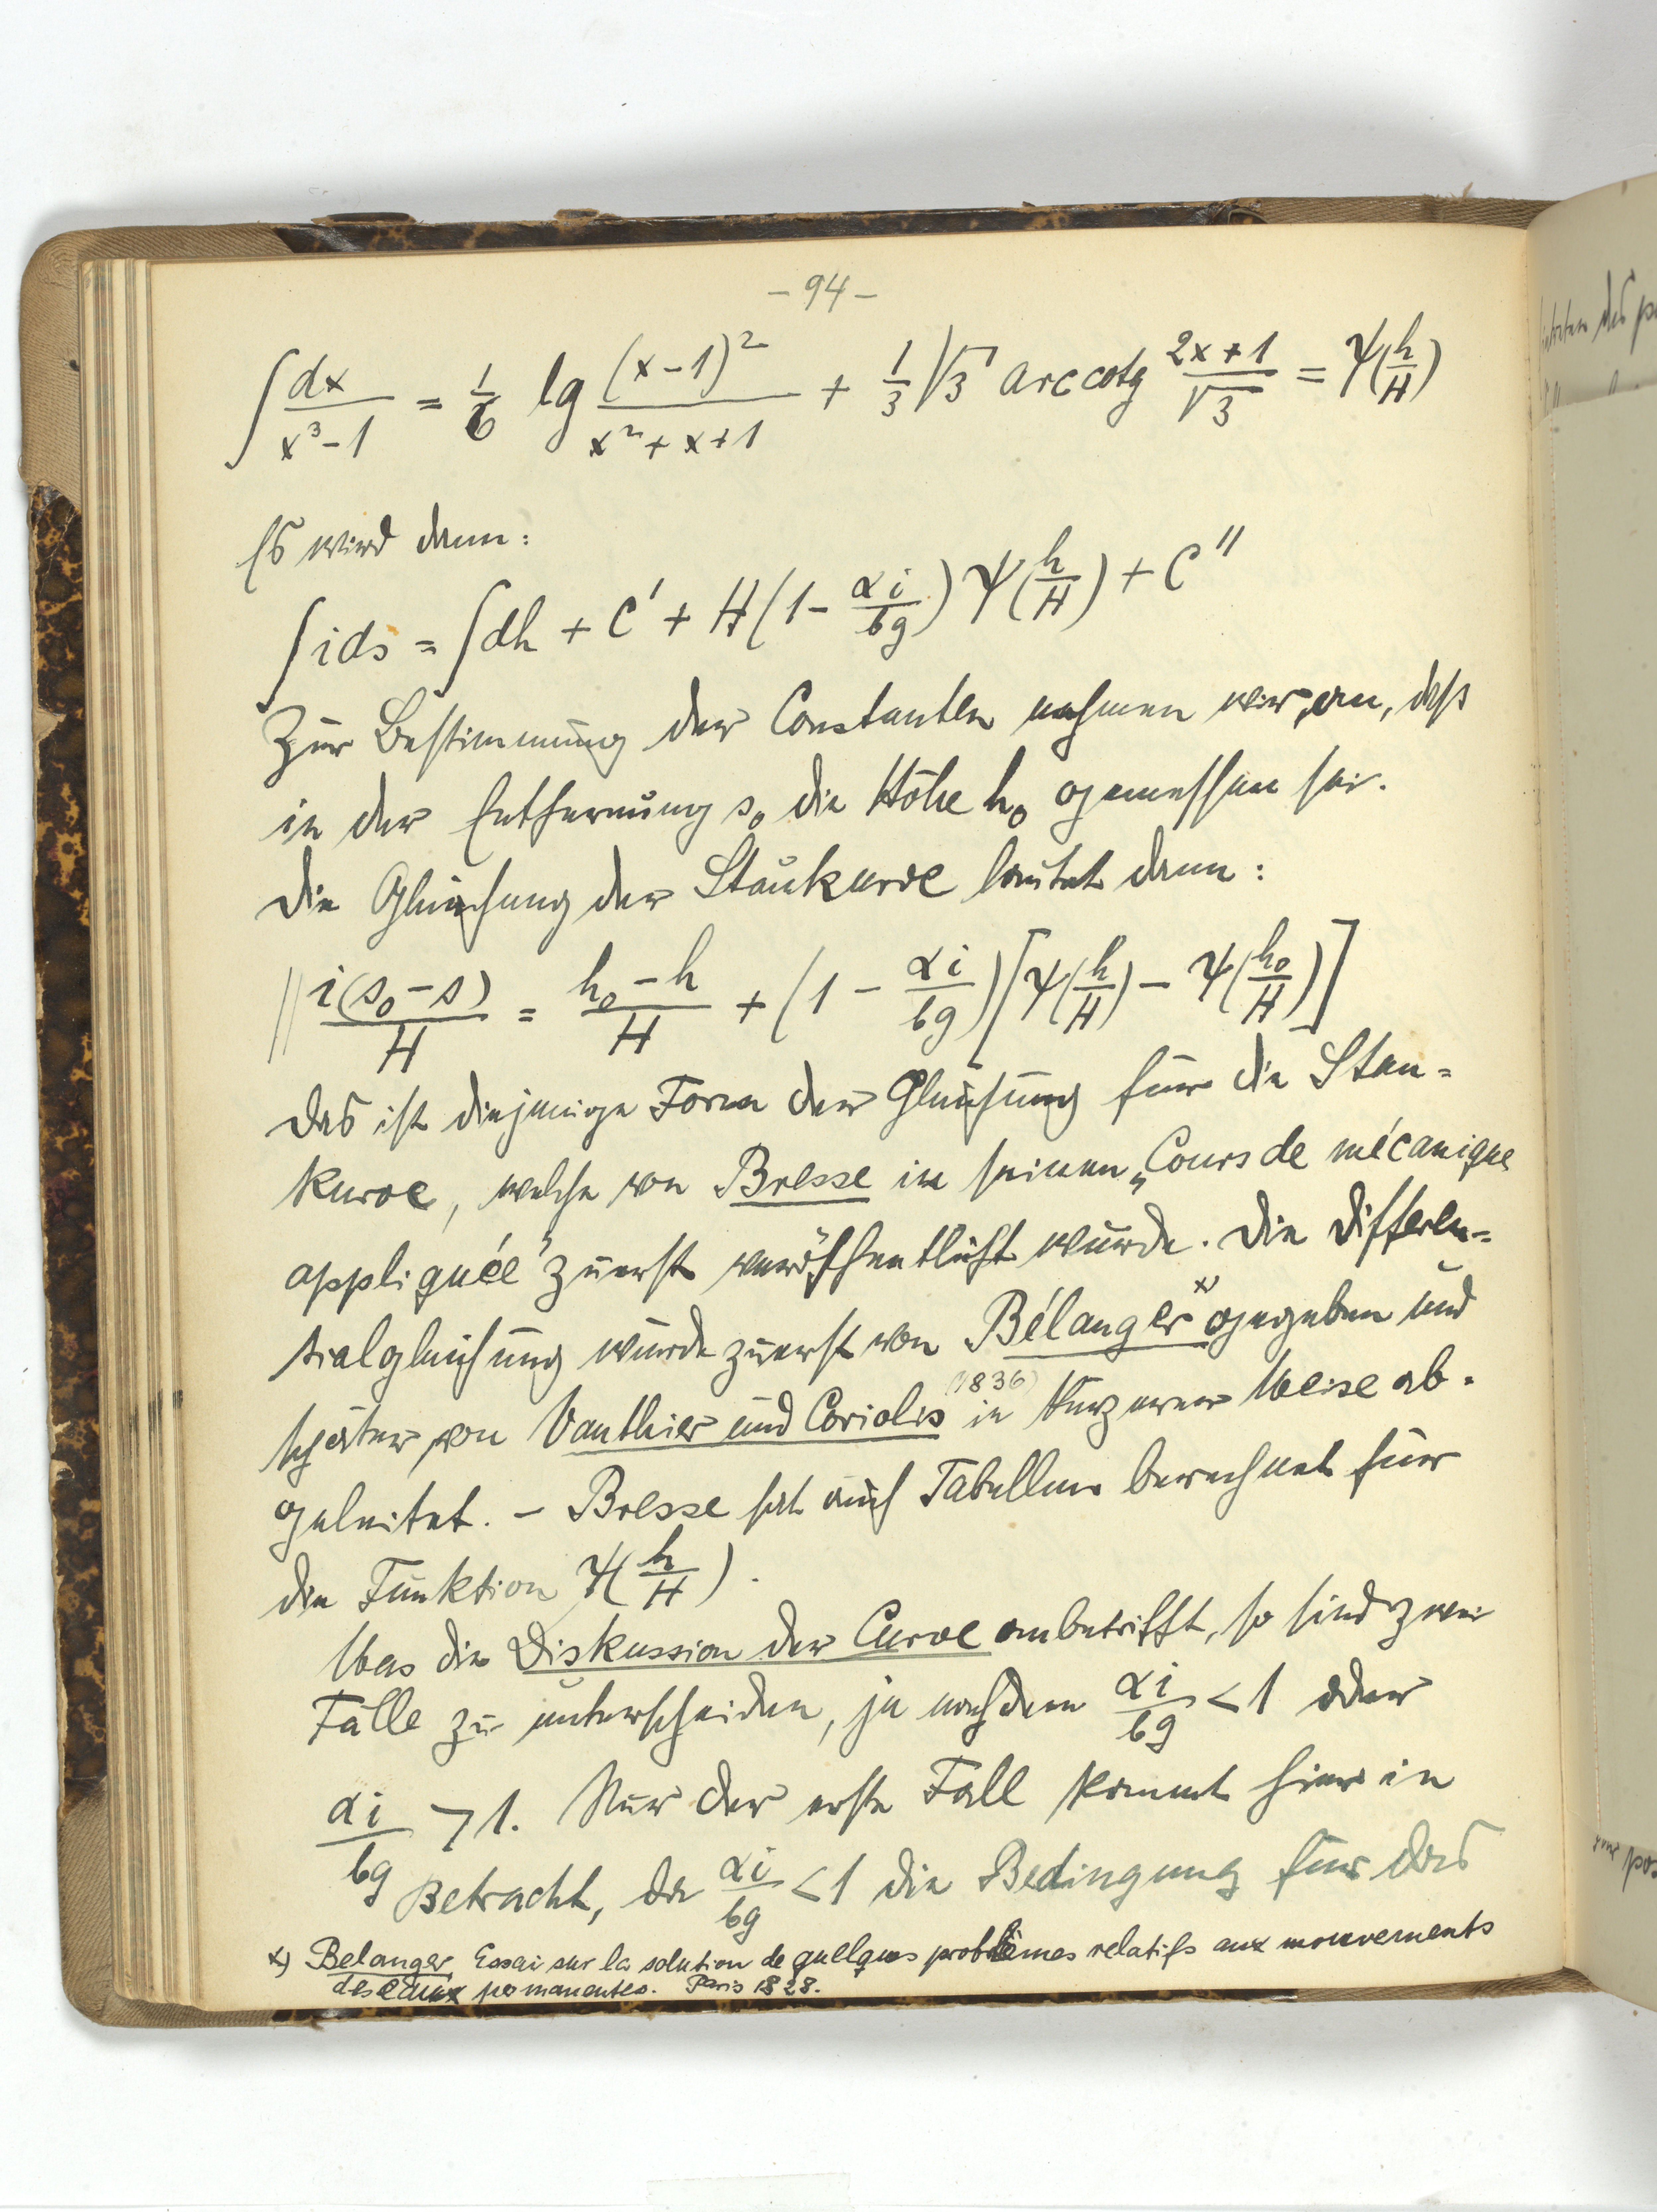 – 94 –
∫ dx/(x³ – 1) = 1/6 lg (x – 1)²/(x² + x + 1) + 1/3 √3 arc cotg (2x + 1)/√3 = Ψ(h/H)
Es wird dann:
∫ i ds = ∫ dh + C' + H(1 – αi/bg) Ψ(h/H) + C''
Zur Bestimmung der Constanten nehmen wir an, daß
in der Entfernung s₀ die Höhe h₀ gemessen sei.
Die Gleichung der Staukurve lautet dann:
|| i(s₀ – s)/H = (h₀ – h)/H + (1 – αi/bg)[Ψ(h/H) – Ψ(h₀/H)]
Das ist diejenige Form der Gleichung für die Stau=
kurve, welche von Bresse in seinen „Cours de mécanique
appliquée" zuerst veröffentlicht wurde. Die Differen=
tialgleichung wurde zuerst von Bélanger ˣ⁾ gegeben und
später von Vauthier und Coriolis (1836) in kürzerer Weise ab=
geleitet. – Bresse hat auch Tabellen berechnet für
die Funktion Ψ(h/H).
Was die Diskussion der Curve anbetrifft, so sind zwei
Fälle zu unterscheiden, je nachdem αi/bg < 1 oder
αi/bg > 1. Nur der erste Fall kommt hier in
Betracht, da αi/bg < 1 die Bedingung für das
x) Belanger, Essai sur la solution de quelques problèmes relatifs aux mouvements
des eaux permanentes. Paris 1828.